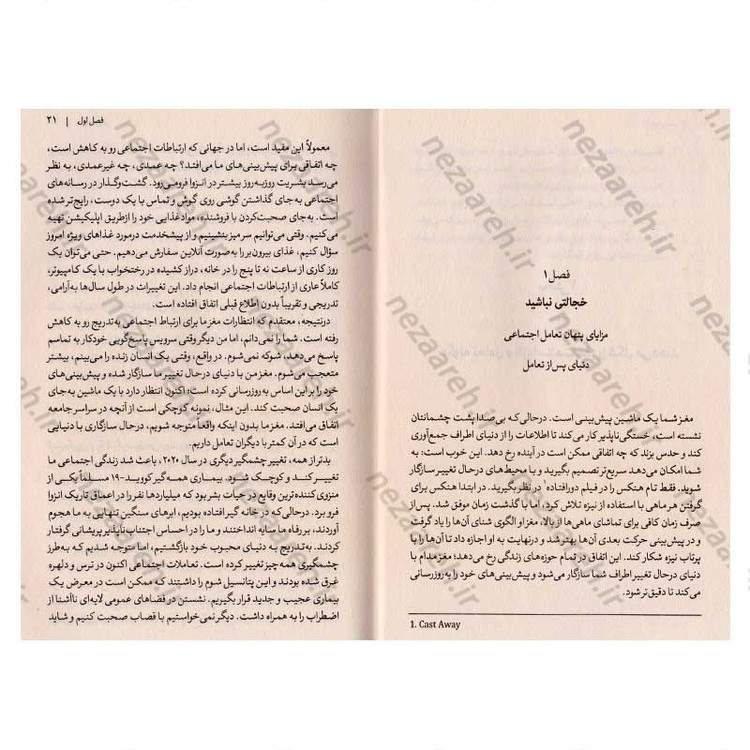 فصل ۱
خجالتی نباشید
مزایای پنهان تعامل اجتماعی
دنیای پس از تعامل
مغز شما یک ماشین پیش‌بینی است. درحالی‌که بی‌صدا پشت چشمانتان
نشسته است، خستگی‌ناپذیر کار می‌کند تا اطلاعات را از دنیای اطراف جمع‌آوری
کند و حدس بزند که چه اتفاقی ممکن است در آینده رخ دهد. این خوب است: به
شما امکان می‌دهد سریع‌تر تصمیم بگیرید و با محیط‌های درحال تغییر سازگار
شوید. فقط تام هنکس را در فیلم دورافتاده۱ در نظر بگیرید. در ابتدا هنکس برای
گرفتن هر ماهی با استفاده از نیزه تلاش کرد، اما با گذشت زمان موفق شد. پس از
صرف زمان کافی برای تماشای ماهی‌ها از بالا، مغز او الگوی شنای آن‌ها را یاد گرفت
و در پیش‌بینی حرکت بعدی آن‌ها بهتر شد و درنهایت به او اجازه داد تا آن‌ها را با
پرتاب نیزه شکار کند. این اتفاق در تمام حوزه‌های زندگی رخ می‌دهد؛ مغز مدام با
دنیای درحال تغییر اطراف شما سازگار می‌شود و پیش‌بینی‌های خود را به‌روزرسانی
می‌کند تا دقیق‌تر شود.
1. Cast Away
فصل اول | ۲۱
معمولاً این مفید است، اما در جهانی که ارتباطات اجتماعی رو به کاهش است،
چه اتفاقی برای پیش‌بینی‌های ما می‌افتد؟ چه عمدی، چه غیرعمدی، به نظر
می‌رسد بشریت روزبه‌روز بیشتر در انزوا فرومی‌رود. گشت‌وگذار در رسانه‌های
اجتماعی به جای گذاشتن گوشی روی گوش و تماس با یک دوست، رایج‌تر شده
است. به‌جای صحبت‌کردن با فروشنده، مواد غذایی خود را ازطریق اپلیکیشن تهیه
می‌کنیم. وقتی می‌توانیم سر میز بنشینیم و از پیشخدمت درمورد غذاهای ویژه امروز
سؤال کنیم، غذای بیرون‌بر را به‌صورت آنلاین سفارش می‌دهیم. حتی می‌توان یک
روز کاری از ساعت نه تا پنج را در خانه، دراز کشیده در رختخواب با یک کامپیوتر،
کاملاً عاری از ارتباطات اجتماعی انجام داد. این تغییرات در طول سال‌ها به‌آرامی،
تدریجی و تقریباً بدون اطلاع قبلی اتفاق افتاده است.
درنتیجه، معتقدم که انتظارات مغز ما برای ارتباط اجتماعی به‌تدریج رو به کاهش
رفته است. شما را نمی‌دانم، اما من دیگر وقتی سرویس پاسخ‌گویی خودکار به تماسم
پاسخ می‌دهد، شوکه نمی‌شوم. در واقع، وقتی یک انسان زنده را می‌بینم، بیشتر
متعجب می‌شوم. مغز من با دنیای درحال تغییر ما سازگار شده و پیش‌بینی‌های
خود را بر این اساس به‌روزرسانی کرده است: اکنون انتظار دارد با یک ماشین به‌جای
یک انسان صحبت کند. این مثال، نمونه کوچکی است از آنچه در سراسر جامعه
اتفاق می‌افتد. مغز ما بدون اینکه واقعاً متوجه شویم، درحال سازگاری با دنیایی
است که در آن کمتر با دیگران تعامل داریم.
بدتر از همه، تغییر چشمگیر دیگری در سال ۲۰۲۰، باعث شد زندگی اجتماعی ما
تغییر کند و کوچک شود. بیماری همه‌گیر کووید-۱۹ مسلماً یکی از
منزوی‌کننده‌ترین وقایع در حیات بشر بود که میلیاردها نفر را در اعماق تاریک انزوا
فرو برد. درحالی‌که در خانه گیر افتاده بودیم، ابرهای سنگین تنهایی به ما هجوم
آوردند، بر رفاه ما سایه انداختند و ما را در احساس اجتناب‌ناپذیر پریشانی گرفتار
کردند. به‌تدریج به دنیای محبوب خود بازگشتیم، اما متوجه شدیم که به‌طرز
چشمگیری همه چیز تغییر کرده است. تعاملات اجتماعی اکنون در ترس و دلهره
غرق شده بودند و این پتانسیل شوم را داشتند که ممکن است در معرض یک
بیماری عجیب و جدید قرار بگیریم. نشستن در فضاهای عمومی لایه‌ای ناآشنا از
اضطراب را به همراه داشت. دیگر نمی‌خواستیم با قصاب صحبت کنیم و شاید
nezaareh.ir